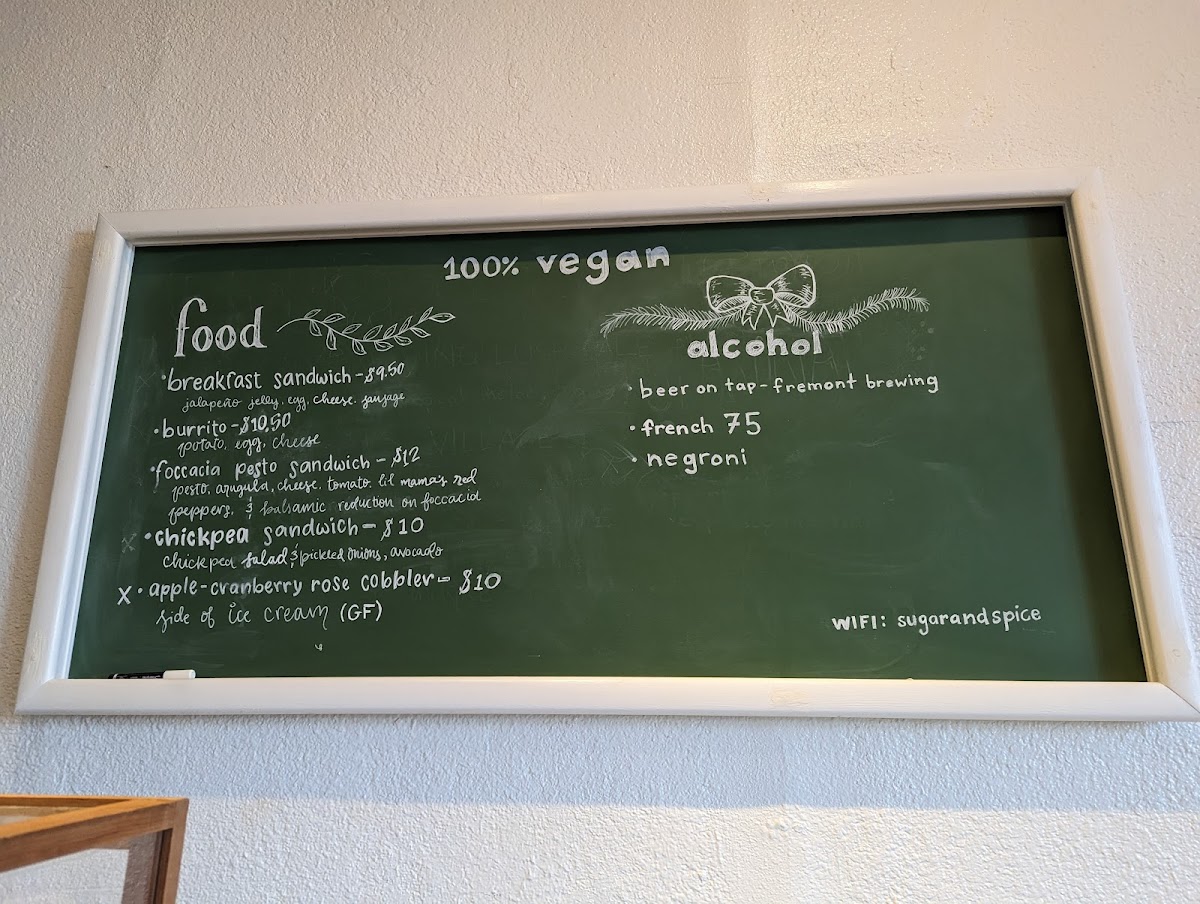 100% vegan
food
• breakfast sandwich - $9.50
jalapeño jelly, egg, cheese, sausage
• burrito - $10.50
potato, egg, cheese
• foccacia pesto sandwich - $12
pesto, arugula, cheese, tomato, lil mama's red
peppers, & balsamic reduction on foccacia
• chickpea sandwich - $10
chickpea salad & pickled onions, avocado
X • apple-cranberry rose cobbler - $10
side of ice cream (GF)
alcohol
• beer on tap - fremont brewing
• french 75
• negroni
WIFI: sugarandspice